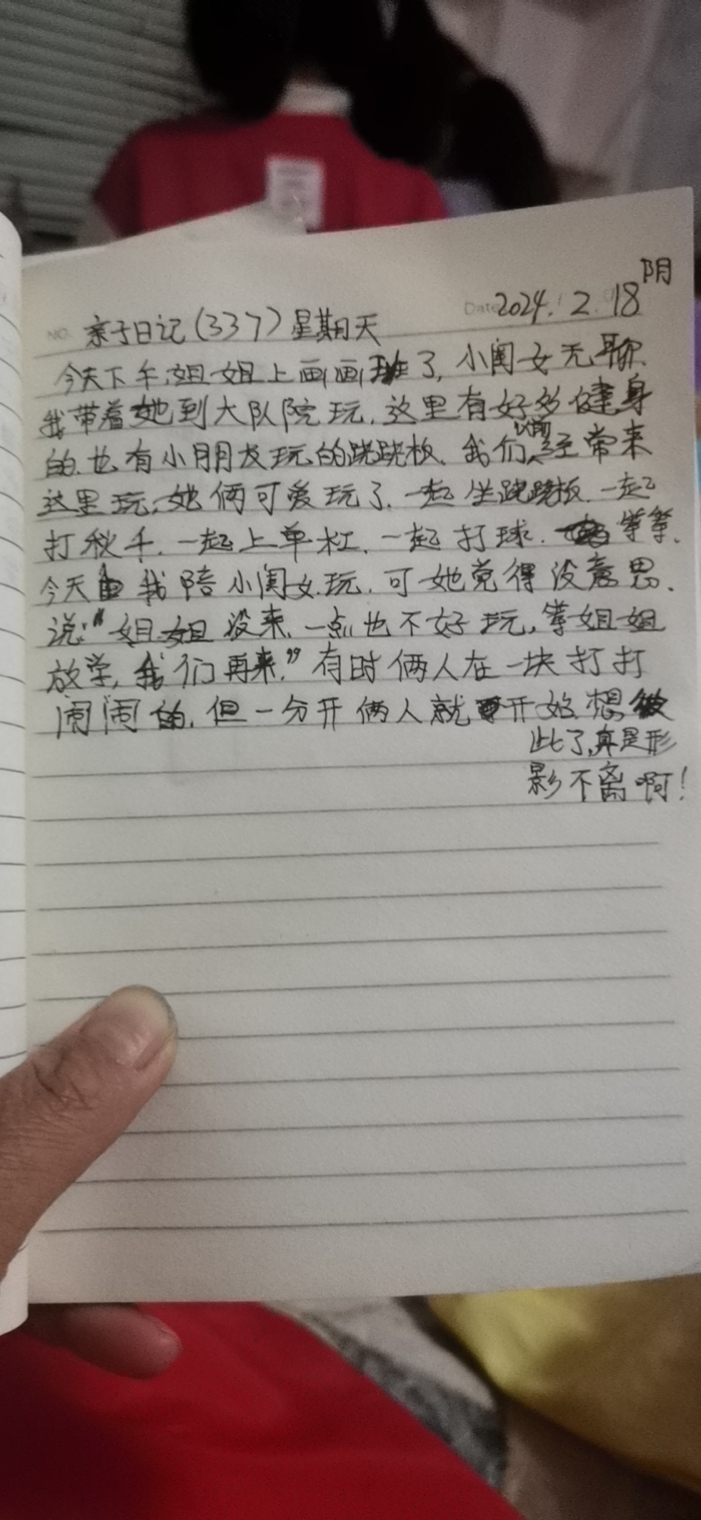 阴
Date 2024.2.18
NO. 亲子日记(337)星期天
今天下午,姐姐上画画班了,小闺女无聊.
我带着她到大队院玩,这里有好多健身
的.也有小朋友玩的跷跷板、我们经常来
这里玩,她俩可爱玩了,一起坐跷跷板,一起
打秋千,一起上单杠,一起打球,等等.
今天我陪小闺女玩,可她觉得没意思、
说:“姐姐没来,一点也不好玩,等姐姐
放学,我们再来.”有时俩人在一块打打
闹闹的,但一分开俩人就开始想彼
此了,真是形
影不离啊!